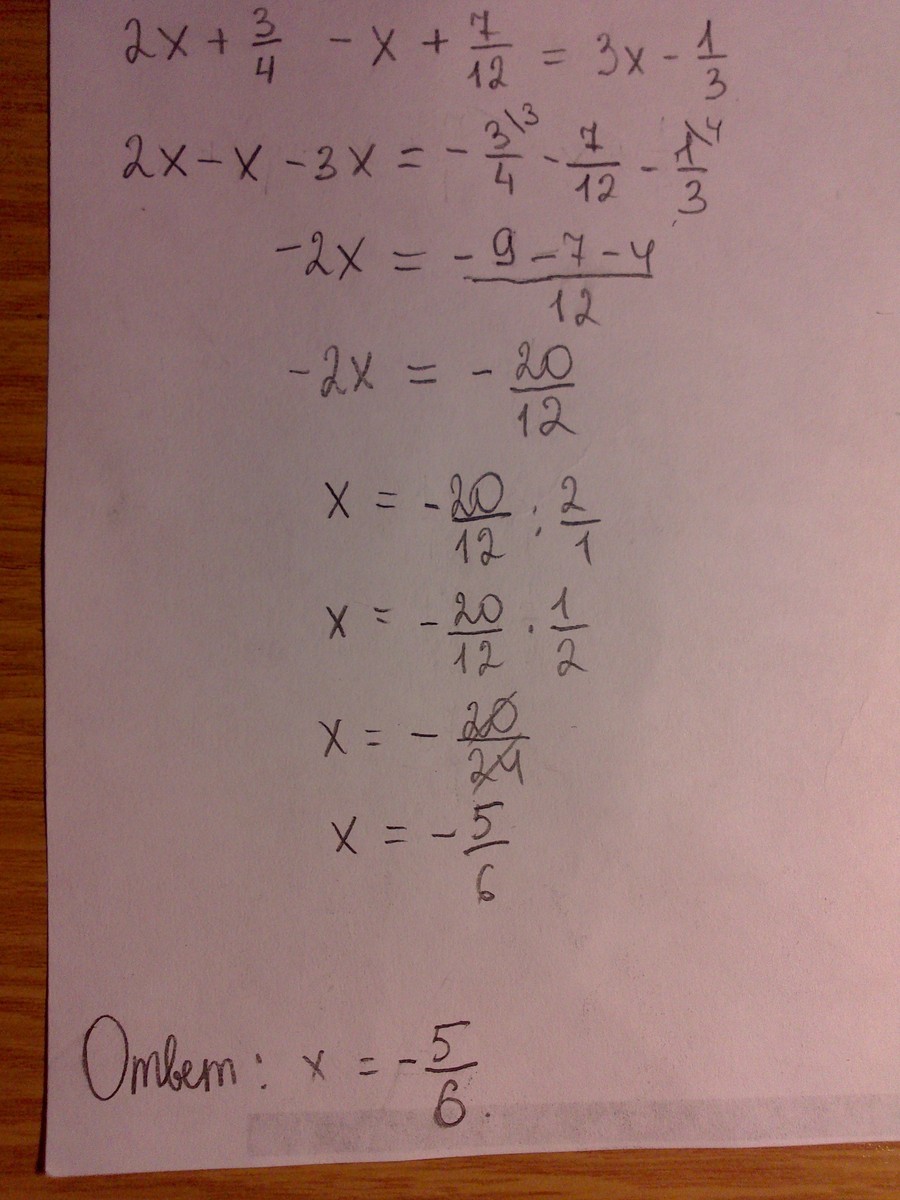 2x + 3/4 - x + 7/12 = 3x - 1/3
2x - x - 3x = - 3\3/4 - 7/12 - 1\4/3
-2x = - 9 - 7 - 4/12
-2x = - 20/12
x = - 20/12 : 2/1
x = - 20/12 · 1/2
x = - 20/24
x = - 5/6
Ответ: x = - 5/6.